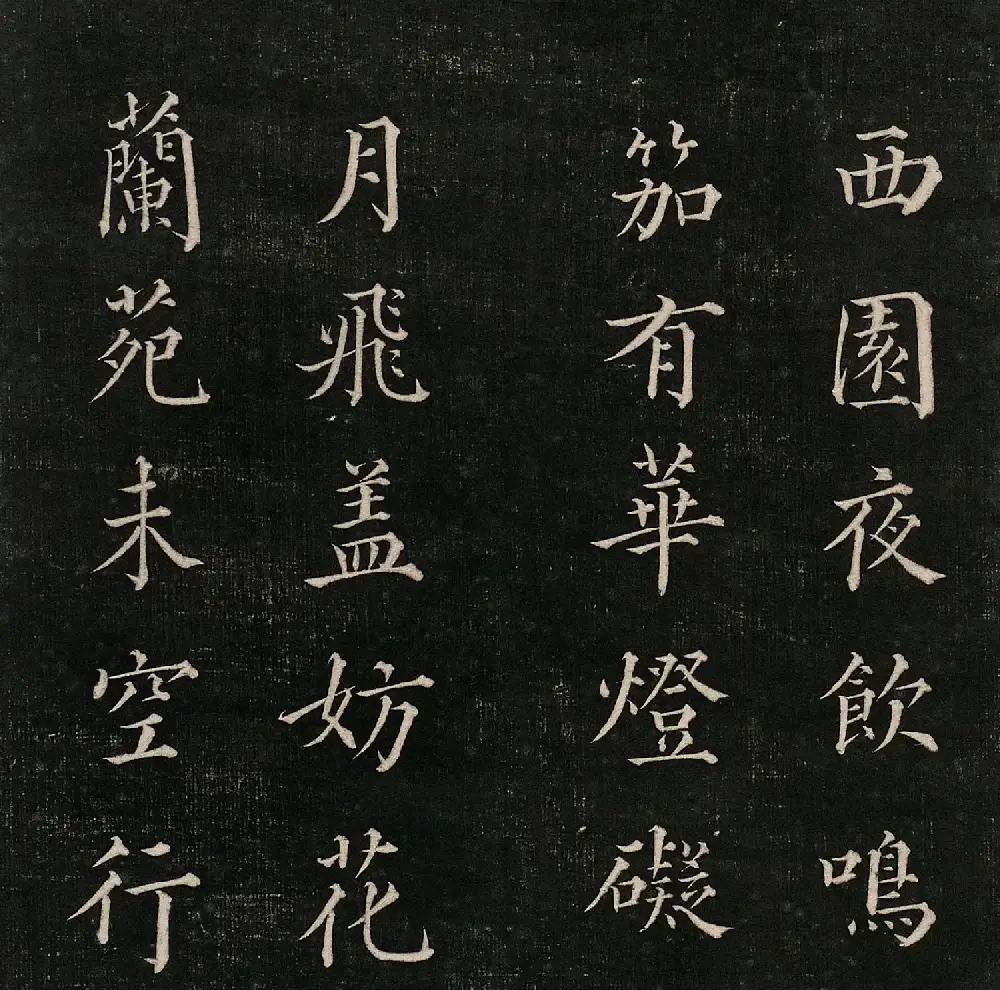 西園夜飲鳴
笳有華燈礙
月飛盖妨花
蘭苑未空行